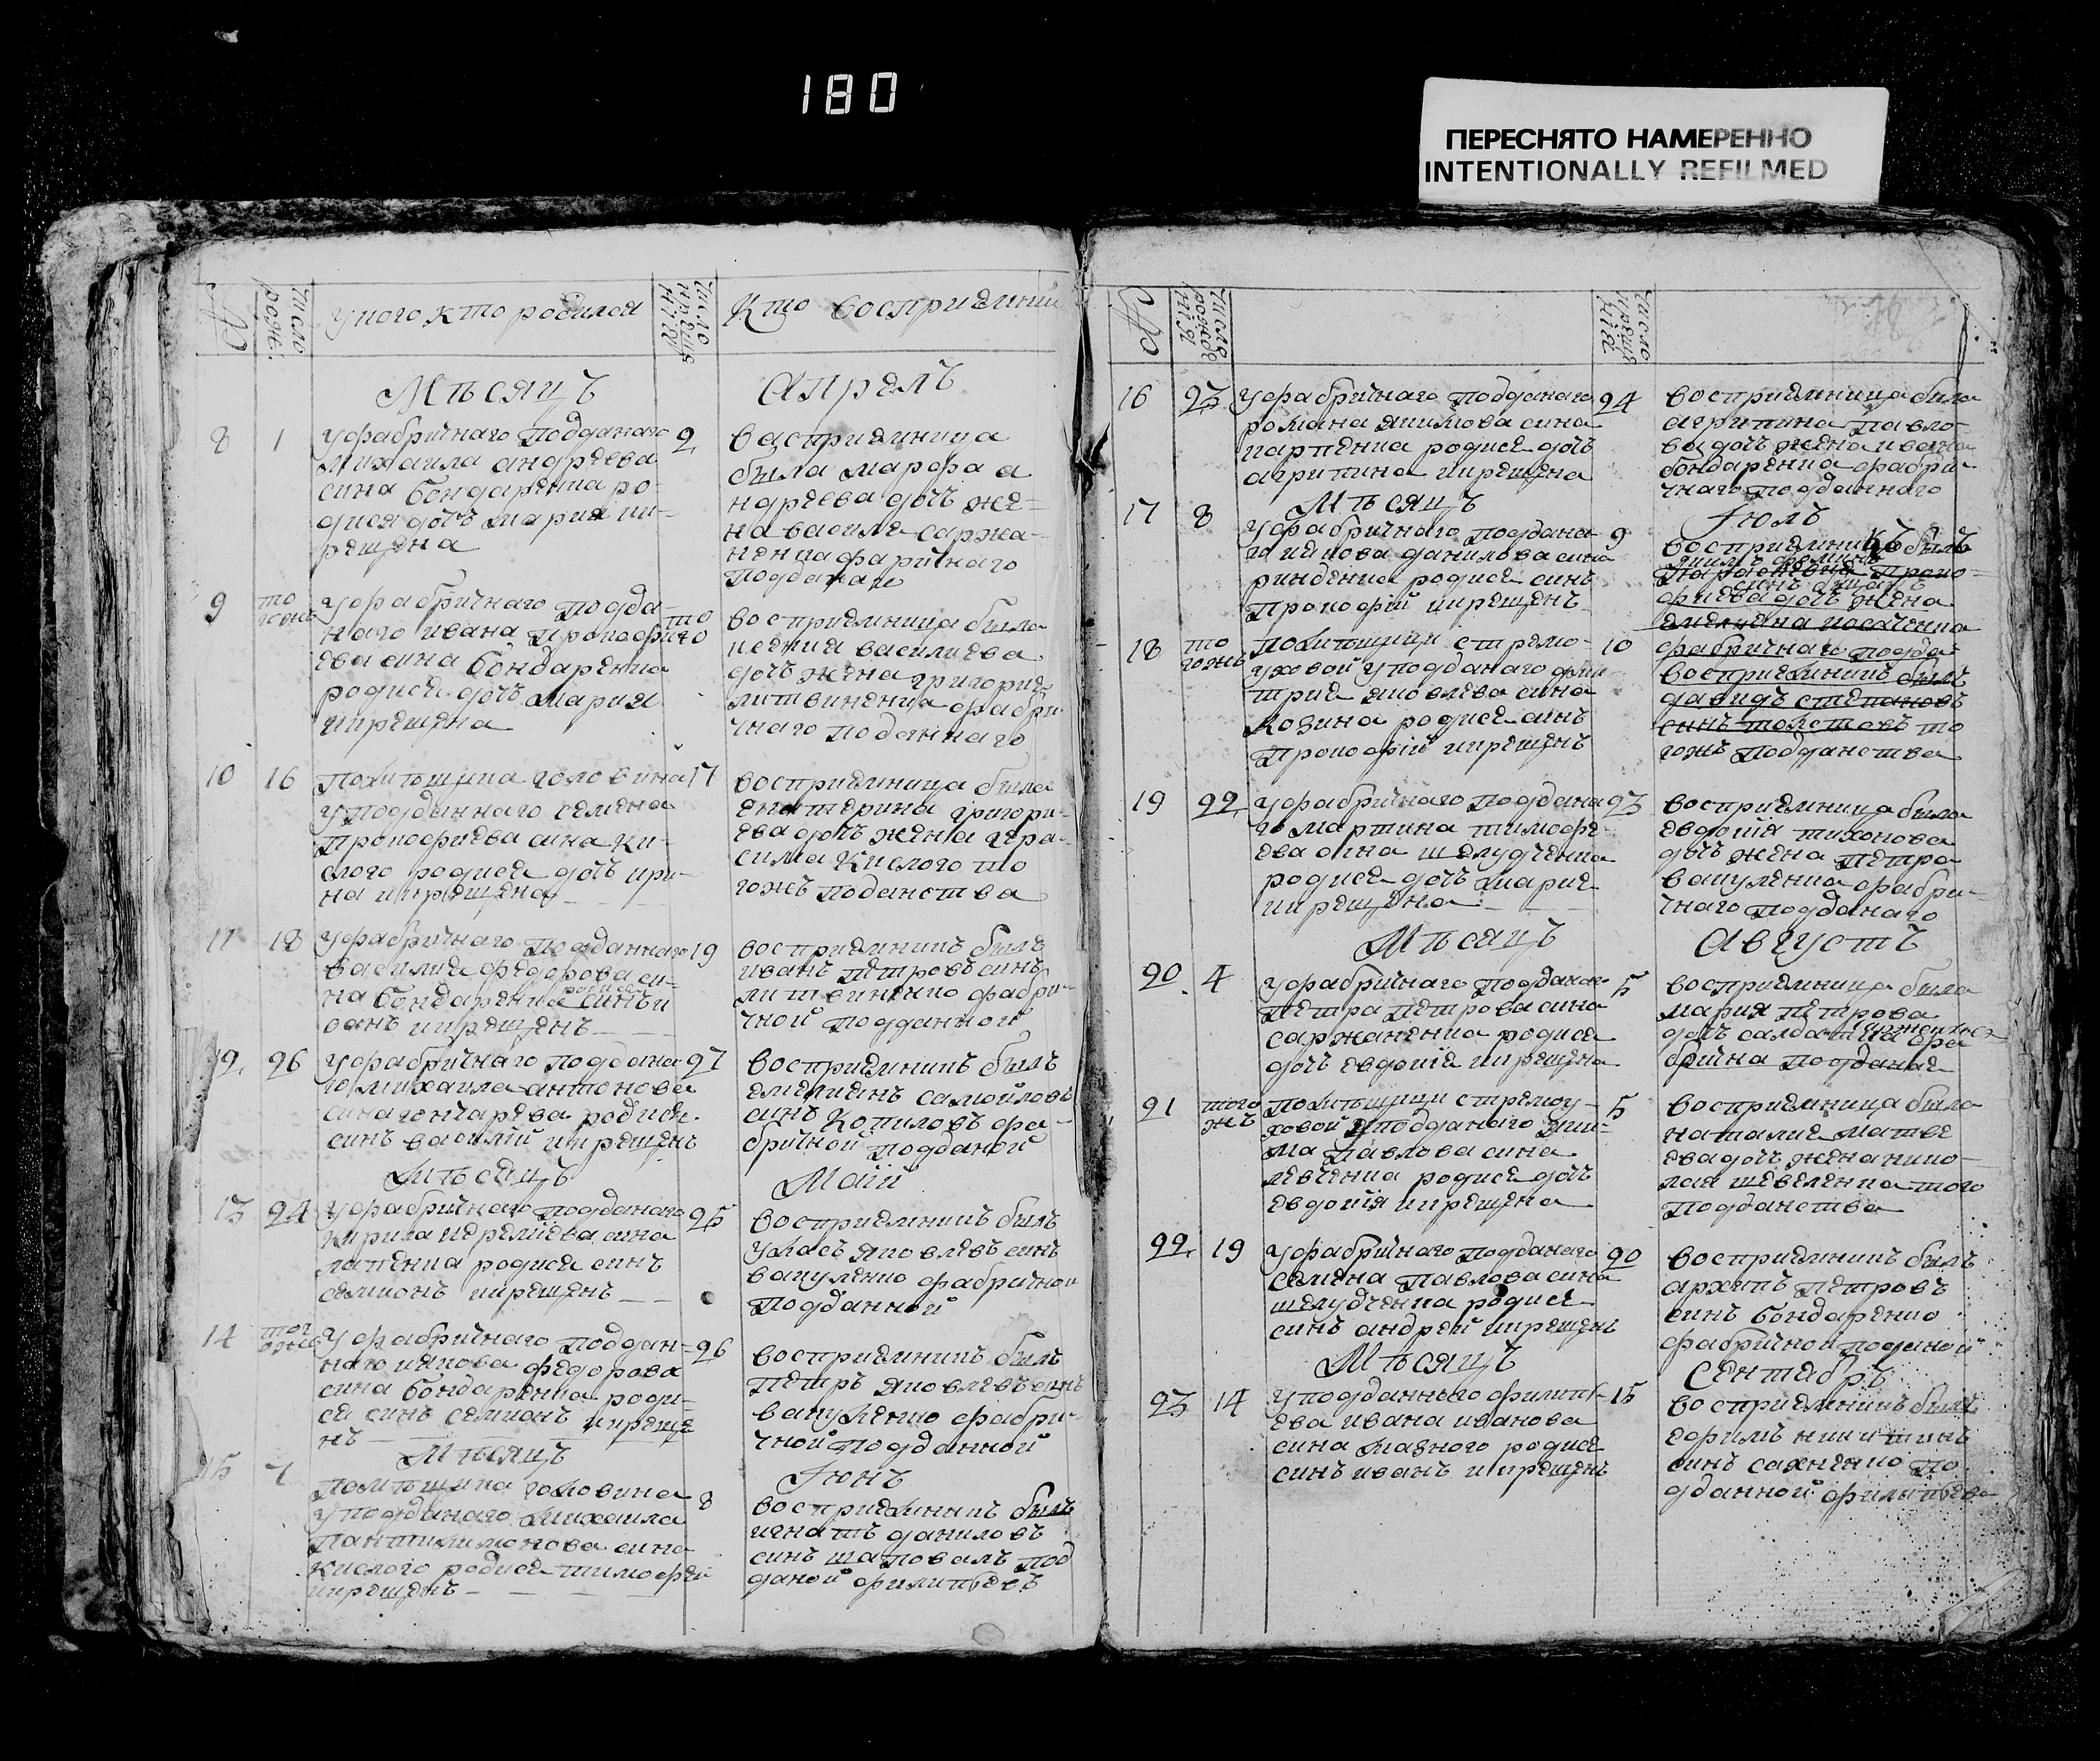 180
ПЕРЕСНЯТО НАМЕРЕННО
INTENTIONALLY REFILMED
№
Число роже:
У кого кто родился
Число креще нія
Кто восприемник
Мѣсяцъ
Апрель
8 1 У фабричнаго подданаго 2
Михаила андреева
сина бондаренка ро-
дися дочь мария кр-
рещена
восприемница
была марфа а
ндреева дочь же-
на василя саржа-
ненка фабричнаго
подданаго
9 то гожъ У фабричнаго подда- то
наго ивана прокофи го
ева сина бондаренка
родися дочь мария
крещена
восприемница была
ксения василиева
дочь жена григория
литвиненка фабри
чнаго подданнаго
10 16 Помѣщика головина 17
у подданнаго семена
прокофиева сина ки-
слого родися дочь ири-
на крещена
восприемница была
екатерина григори-
ева дочь жена гера-
сима кислого то
гожъ поданства
11 18 У фабричнаго подданнаго 19
василия федорова си-
на бондаренка родися синъ и
оанъ крещенъ
восприемникъ былъ
иванъ петровъ синъ
литвиненко фабри-
чной подданной
12 26 У фабричнаго поддана 27
го михаила антонова
сина гончарева родися
синъ василій крещенъ
восприемникъ былъ
емелианъ самойловъ
синъ Копиловъ фа-
бричной подданой
Мѣсяцъ
Маій
13 24 У фабричнаго подданаго 25
кирила
сина
родися синъ
семионъ крещенъ
восприемникъ былъ
уласъ яковлевъ синъ
вакуленко фабричной
подданной
14 того жъ У фабричнаго поддан- 26
наго иякова федорова
сина бондаренка роди-
ся синъ семионъ креще
нъ
восприемникъ былъ
петръ яковлевъ синъ
вакуленко фабри-
чной подданной
Мѣсяцъ
Іюнь
15 7 Помѣщика головина 8
у подданаго михаила
пантилимонова сина
кислого родися тимофей
крещенъ
восприемникъ былъ
игнатъ даниловъ
синъ шаповалъ под
даной филипьевъ
№
Число рожде нія
Число креще нія
16 23 У фабричнаго подданаго 24
романа якимова сина
карпенка родися дочь
агрипина крещена
восприемница была
агрипина павло-
ва дочь жена ивана
бондаренка фабри-
чнаго подданнаго
Мѣсяцъ
Іюль
17 8 У фабричнаго поддана- 9
го иякова данилова сина
родися синъ
прокофій крещенъ
восприемникъ былъ
дочь жена
18 то гожъ Помѣщици стремо- 10
уховой у подданаго дми
трия яковлева сина
Козина родися синъ
прокофій крещенъ
фабричнаго подда
восприемникъ былъ
давидъ степановъ
синъ толстовъ то
гожъ подданства
19 22 У фабричнаго поддана 23
го мартина тимофе-
ева сина шелудченка
родися дочь мария
крещена
восприемница была
евдокія тихонова
дочь жена петра
вакуленка фабри-
чнаго подданаго
Мѣсяцъ
Августъ
20 4 У фабричнаго подданаго 5
петра петрова сина
саржаненка родися
дочь евдокія крещена
восприемница была
мария петрова
дочь
фа
брична подданая
21 того жъ Помѣщици стремоу- 5
ховой у подданаго
павлова сина
левченка родися дочь
евдокія крещена
восприемница была
наталия матве
ева дочь жена нико-
лая шевеленка того
подданства
22 19 У фабричнаго подданаго 20
семена павлова сина
шелудченка родися
синъ андрей крещенъ
восприемникъ былъ
архипъ петровъ
синъ бондаренко
фабричной поданой
Мѣсяцъ
Сентябръ
23 14 У подданнаго филипь- 15
ева ивана иванова
сина мазного родися
синъ иванъ крещенъ
восприемникъ былъ
ефимъ никитинъ
синъ сахненко по
дданной филипьева